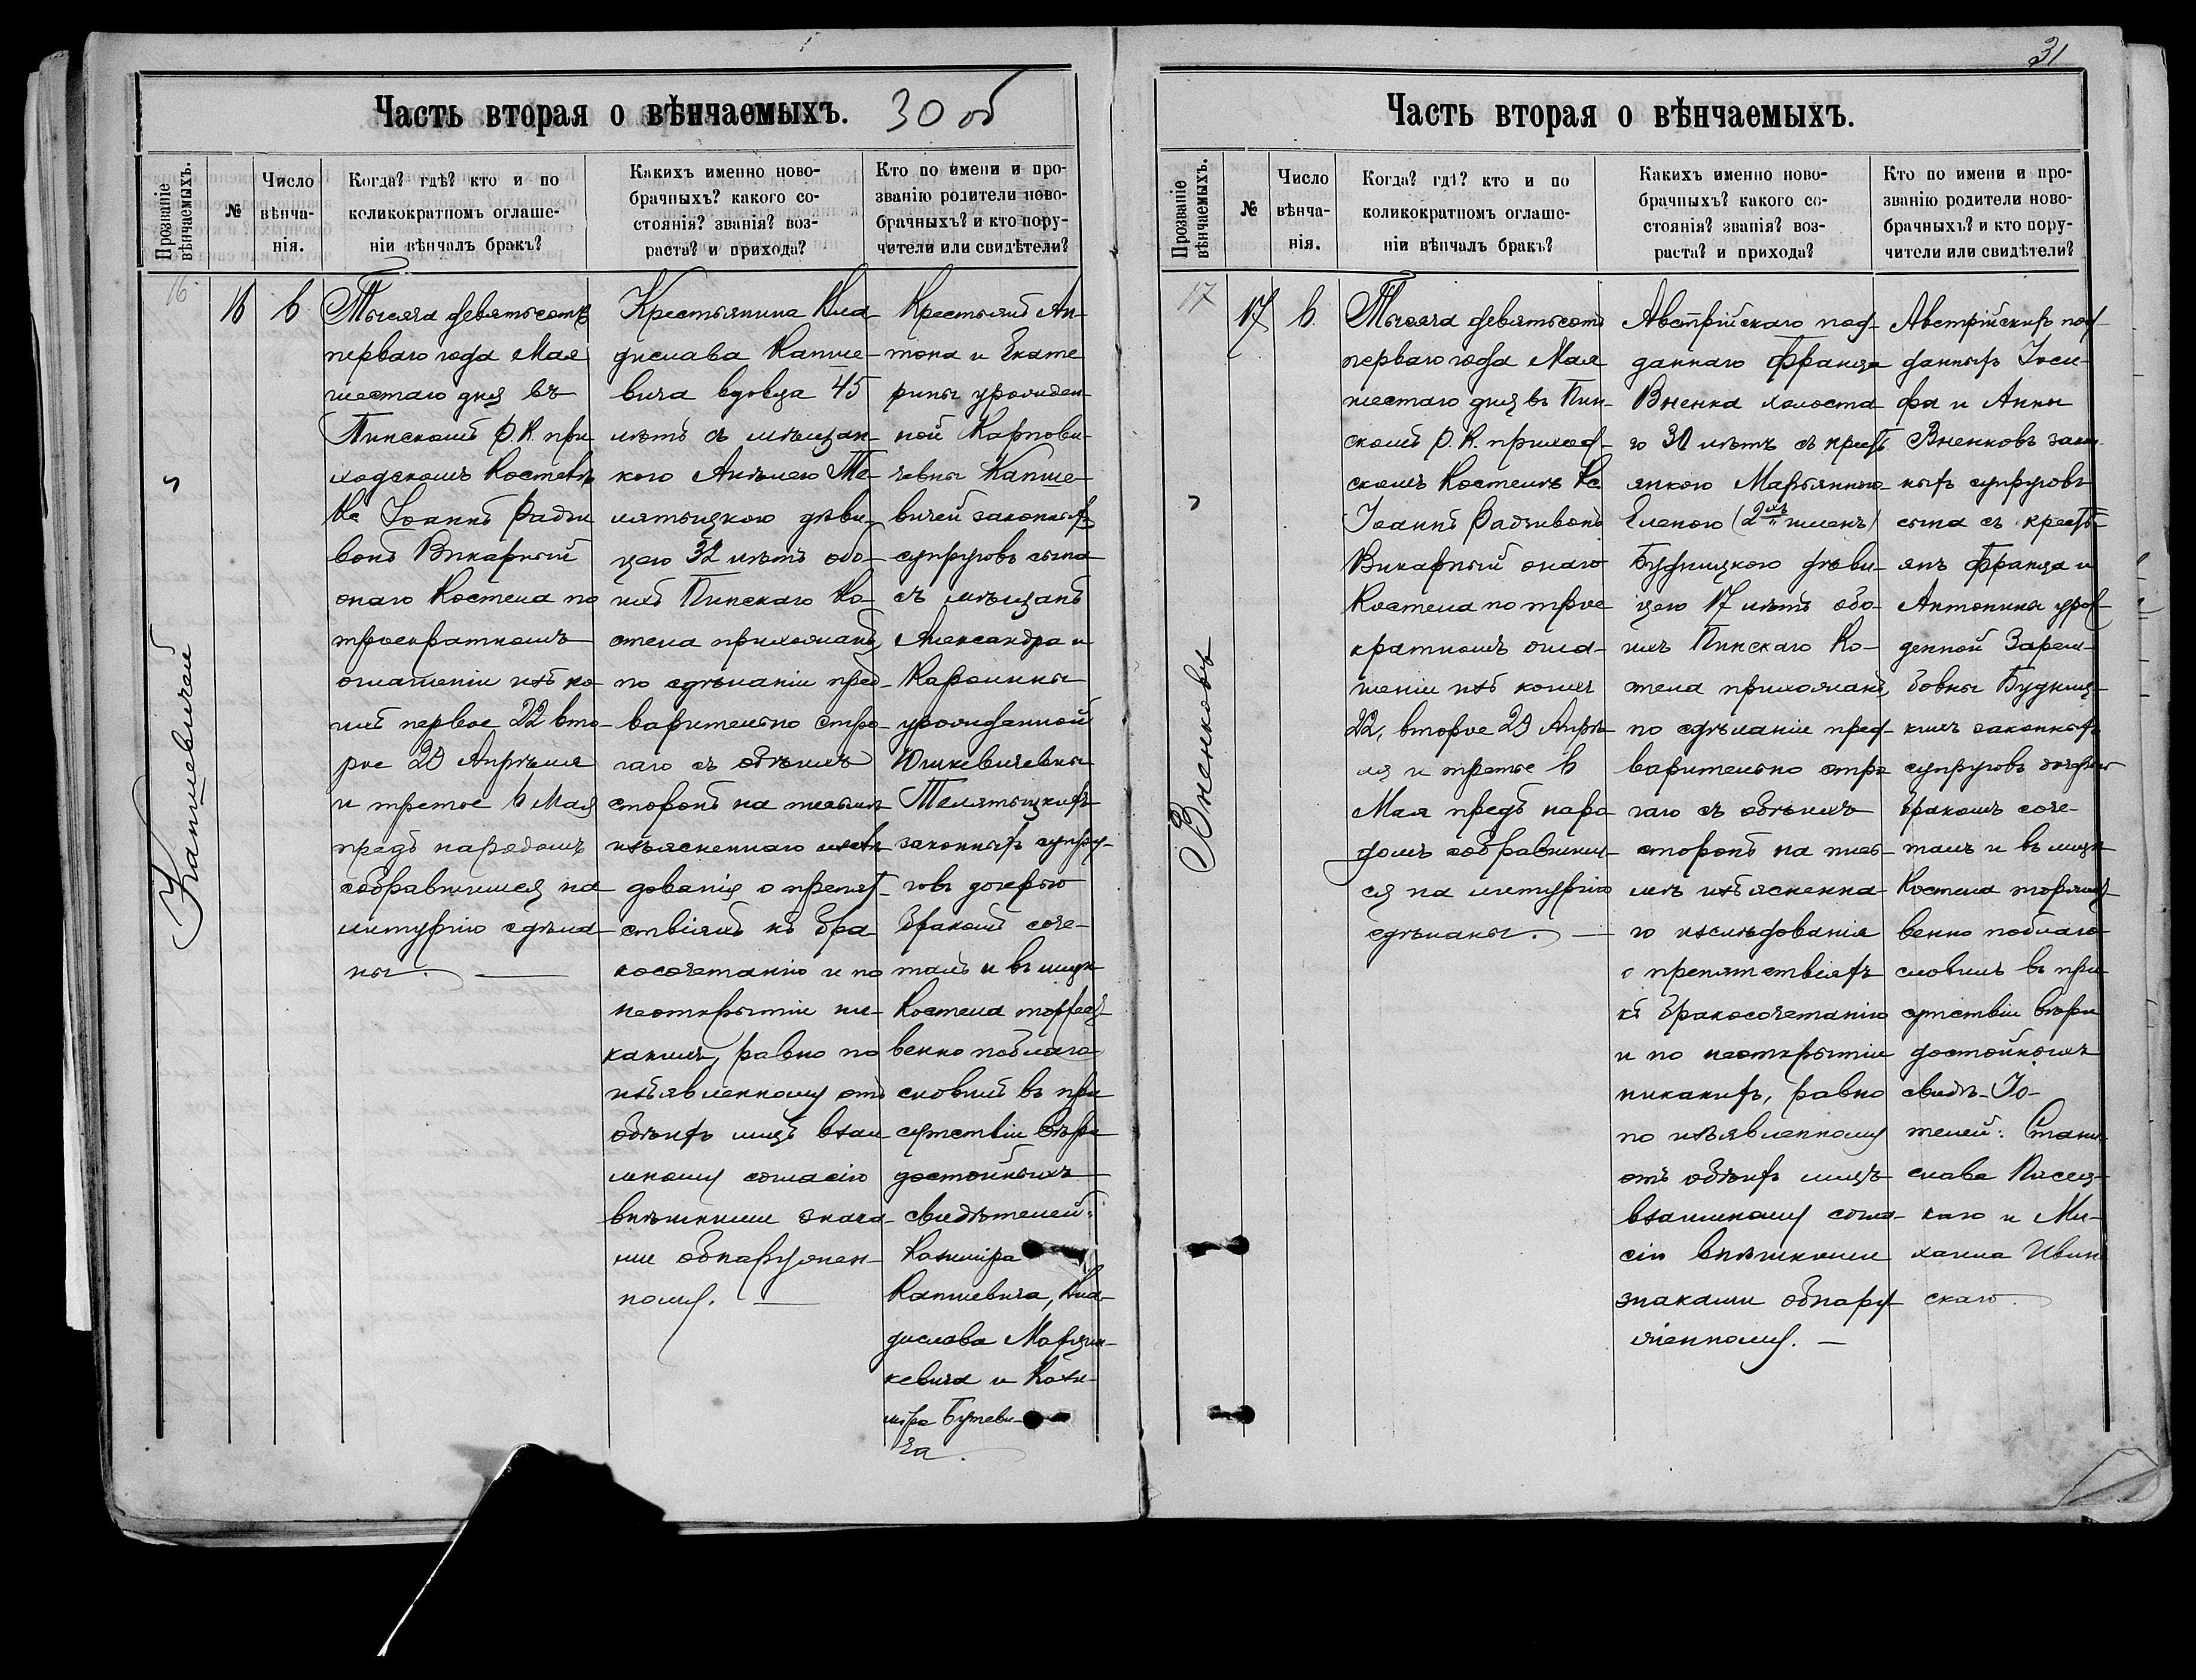 31
Часть вторая о вѣнчаемыхъ. 30 об
Прозваніе вѣнчаемыхъ.
№
Число вѣнча-нія.
Когда? гдѣ? кто и по
коликократномъ оглаше-
ніи вѣнчалъ бракъ?
Какихъ именно ново-
брачныхъ? какого со-
стоянія? званія? воз-
раста? и прихода?
Кто по имени и про-
званію родители ново-
брачныхъ? и кто пору-
чители или свидѣтели?
16
Капшевичей
16
6
Тысяча девятьсотъ
перваго года Мая
шестаго дня въ
Пинскомъ Р. К. при
ходскомъ Костелѣ
Кс Іоаннъ Радзи
вонъ Викарный
онаго Костела по
троекратномъ
оглашеніи изъ ко
ихъ первое 22 вто
рое 29 Апрѣля
и третье 6 Мая
предъ народомъ
собравшимся на
литургію сдѣла
ны.
Крестьянина Вла
дислава Капше
вича вдовца 45
лѣтъ съ мѣщан
кою Анѣлею Те
лятыцкою дѣви
цею 32 лѣтъ обо
ихъ Пинскаго Ко
стела прихожанъ,
по сдѣланіи пред
варительно стро
гаго съ обѣихъ
сторонъ на письмѣ
изъясненнаго изслѣ
дованія о препят
ствіяхъ къ бра
косочетанію и по
неоткрытіи ни
какихъ, равно по
изъявленному отъ
обѣихъ лицъ взаи
мному согласію
внѣшними знака
ми обнаружен
ному.
Крестьянъ Ан
тона и Екате
рины урожден
ной Карпови
чевны Капше
вичей законныхъ
супруговъ сына
съ мѣщанъ
Александра и
Каролины
урожданной
Юшкевичевны
Телятыцкихъ
законныхъ супру
говъ дочерью
бракомъ соче
талъ и въ лицѣ
Костела торжест
венно поблаго
словилъ въ при
сутствіи вѣро
достойныхъ
свидѣтелей:
Казиміра
Капшевича, Вла
дислава Марцин
кевича и Кази
міра Бутеви
ча.
Часть вторая о вѣнчаемыхъ.
Прозваніе вѣнчаемыхъ.
№
Число вѣнча-нія.
Когда? гдѣ? кто и по
коликократномъ оглаше-
ніи вѣнчалъ бракъ?
Какихъ именно ново-
брачныхъ? какого со-
стоянія? званія? воз-
раста? и прихода?
Кто по имени и про-
званію родители ново-
брачныхъ? и кто пору-
чители или свидѣтели?
17
Вненковъ
17
6.
Тысяча девятьсотъ
перваго года Мая
шестаго дня въ Пин
скомъ Р. К. приход
скомъ Костелѣ Кс
Іоаннъ Радзивонъ
Викарный онаго
Костела по трое
кратномъ огла
шеніи изъ коихъ
22, второе 29 Апрѣ
ля и третье 6
Мая предъ наро
домъ собравшим
ся на литургію
сдѣланы.
Австрійскаго под
даннаго Франца
Вненка холоста
го 30 лѣтъ съ крест
янкою Марьянною
Еленою (2хъ именъ)
Будницкою дѣви
цею 17 лѣтъ обо
ихъ Пинскаго Ко
стела прихожанъ,
по сдѣланіи пред
варительно стро
гаго съ обѣихъ
сторонъ на пись
мѣ изъясненна
го изслѣдованія
о препятствіяхъ
къ бракосочетанію
и по неоткрытіи
никакихъ, равно
по изъявленному
отъ обѣихъ лицъ
взаимному согла
сію внѣшними
знаками обнару
женному.
Австрійскихъ под
данныхъ Іоси
фа и Анны
Вненковъ закон
ныхъ супруговъ
сына съ кресть
янъ Франца и
Антонины урож
денной Зарем
бовны Будниц
кихъ законныхъ
супруговъ дочерью
бракомъ соче
талъ и въ лицѣ
Костела торжест
венно поблаго
словилъ въ при
сутствіи вѣро
достойныхъ
свидѣ-
телей: Стани
слава
каго и Ми
хаила Ивин
скаго.